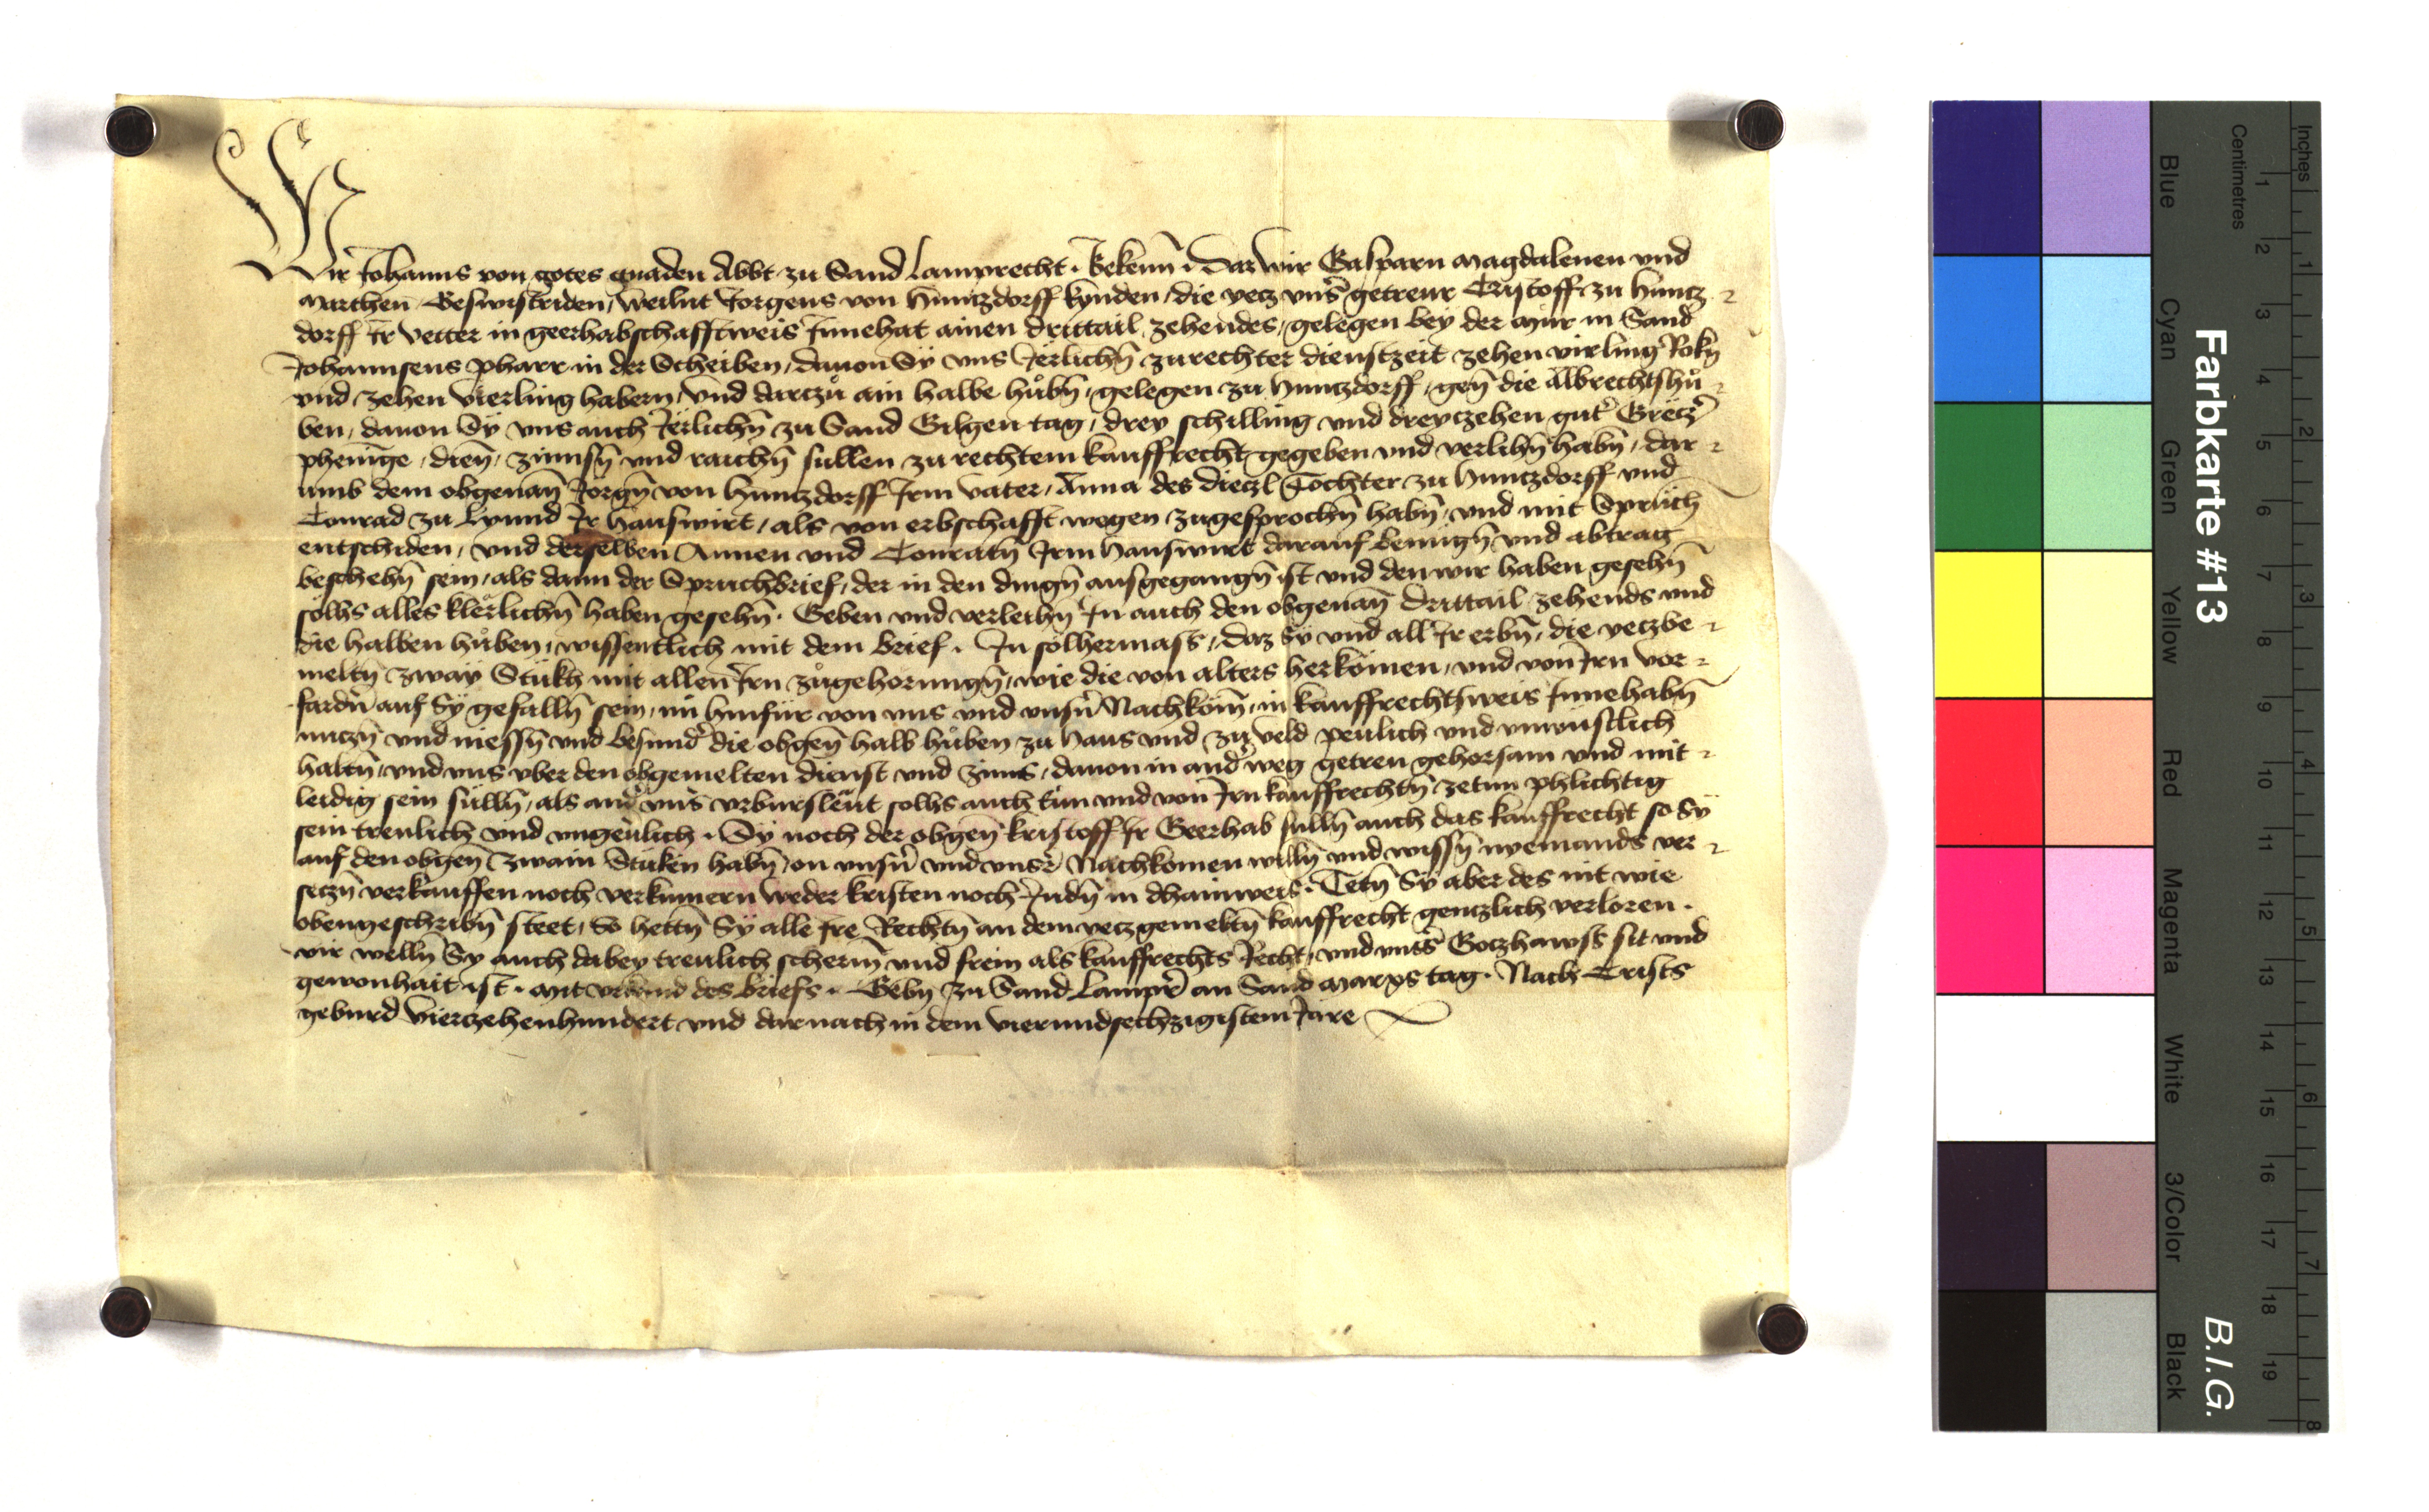 Wir Johanns von gotes gnaden Abbt zu Sand Lamprecht. Bekenn. Daz wir Gasparn Magdalenen und
Marthen Geswistriden, weilnt Jorgens von Huntzdorff kynden, die yecz unser getreur Cristoff zu Huntz
dorff Ir vetter in geerhabschafftweis Innehat ainen drittail zehendes, gelegen bey der Mur in Sand
Johannsens pharr in der Scheiben, dauon Sÿ uns Jerlichn̄ zu rechter dienstzeit zehen virling Rokn̄
und zehen vierling habern, und darczů ain halbe hůbn̄, gelegen zu Huntzdorff, gen̄ die Albrechtshů
ben, dauon Sÿ uns auch Jerlichn̄ zu Sand Gilgen tag, drey schilling und dreyczehen gut̄ Greczr̄
phenige, dien̄, zinnsn̄ und raichn̄ sullen zu rechtem kauffrecht gegeben und verlihn̄ habn̄, dar
umb dem obgenan̄ Jorgn̄ von Huntzdorff Irm vater, Anna des Dieczl Tochter zu Huntzdorff und
Conrad zu Lynnd Ir hauswirt, als von erbschafft wegen zugesprochn̄ habn̄, und mit Spruch
entschiden, und derselben Annen und Conratn̄ Irm hauswirt darauf benugn̄ und abtrag
beschehn̄ sein, als dann der Spruchbrief, der in den dingn̄ ausgegangn̄ ist und den wir haben gesehn̄
solhs alles klerlichn̄ haben gesehn̄. Geben und verleihn̄ In auch den obgenan̄ drittail zehends und
die halben hůben, wissentlich mit dem brief. In solhermass, daz Sy und all Ir erbn̄, die yeczbe
meltn̄ zway Stukh mit allen Irn zůgehorungn̄, wie die von alters herkomen, und von Irn vor
fardn̄ auf Sÿ gefalln̄ sein, nu hinfur von uns und unsn̄ Nachkom̄, in kauffrechtsweis Innehabn̄
nuczn̄ und niessn̄ und besundr̄ die obgen̄ halb hůben zu Haus und zu veld peulich und unwustlich
haltn̄, und uns uber den obgemelten dienst und zinns, dauon in andr̄ weg getreu gehorsam und mit
leidig sein sulln̄, als andr̄ uns̄ urburslewt solhs auch tun und von Irn kauffrechtn̄ zetun phlichtig
sein treulich und ungeuͤlich. Sÿ noch der obgen̄ Kristoff Ir Geerhab sulln̄ auch das kauffrecht so Sÿ
auf den obgen̄ zwain Stuken habn̄, on unsn̄ und unsr̄ Nachkomen willn̄ und wissn̄ nyemands ver
seczn̄ verkauffen noch verkumern weder kristen noch Judn̄ in dhainweis. Tetn̄ Sÿ aber des nit wie
obengeschribn̄ steet, So hettn̄ Sÿ alle Ire Rechtn̄ an dem yeczgemeltn̄ kauffrecht genczlich verloren.
wir welln̄ Sy auch dabey treulich scherm̄ und frein als kauffrechts Recht, und unsr̄ Goczhawss sit und
gewonhait ist. Mit urkund des briefs. Gebn̄ zu Sand Lampr̄ an Sand Marxs tag. Nach Crists
geburd vierzehenhundert und darnach in dem vierundsechzigistem Jare
Farbkarte #13
B.I.G.
Inches
Centimetres
1 2 3 4 5 6 7 8 9 10 11 12 13 14 15 16 17 18 19
1 2 3 4 5 6 7 8
Blue
Cyan
Green
Yellow
Red
Magenta
White
3/Color
Black